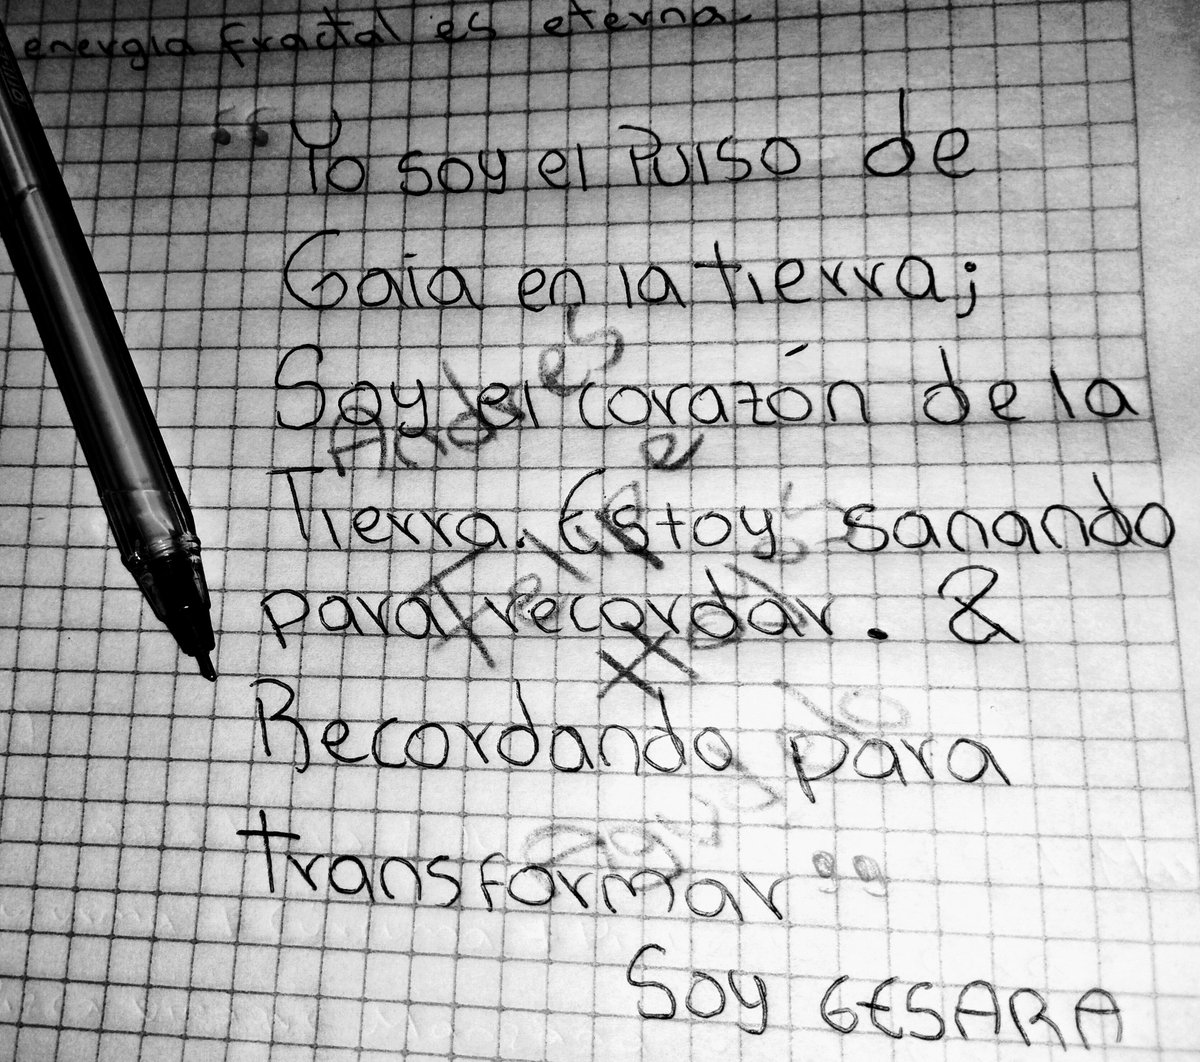 energia fractal es eterna
"Yo soy el Pulso de
Gaia en la tierra;
Soy el corazón de la
Tierra. Estoy sanando
para recordar. &
Recordando para
transformar"
Soy GESARA